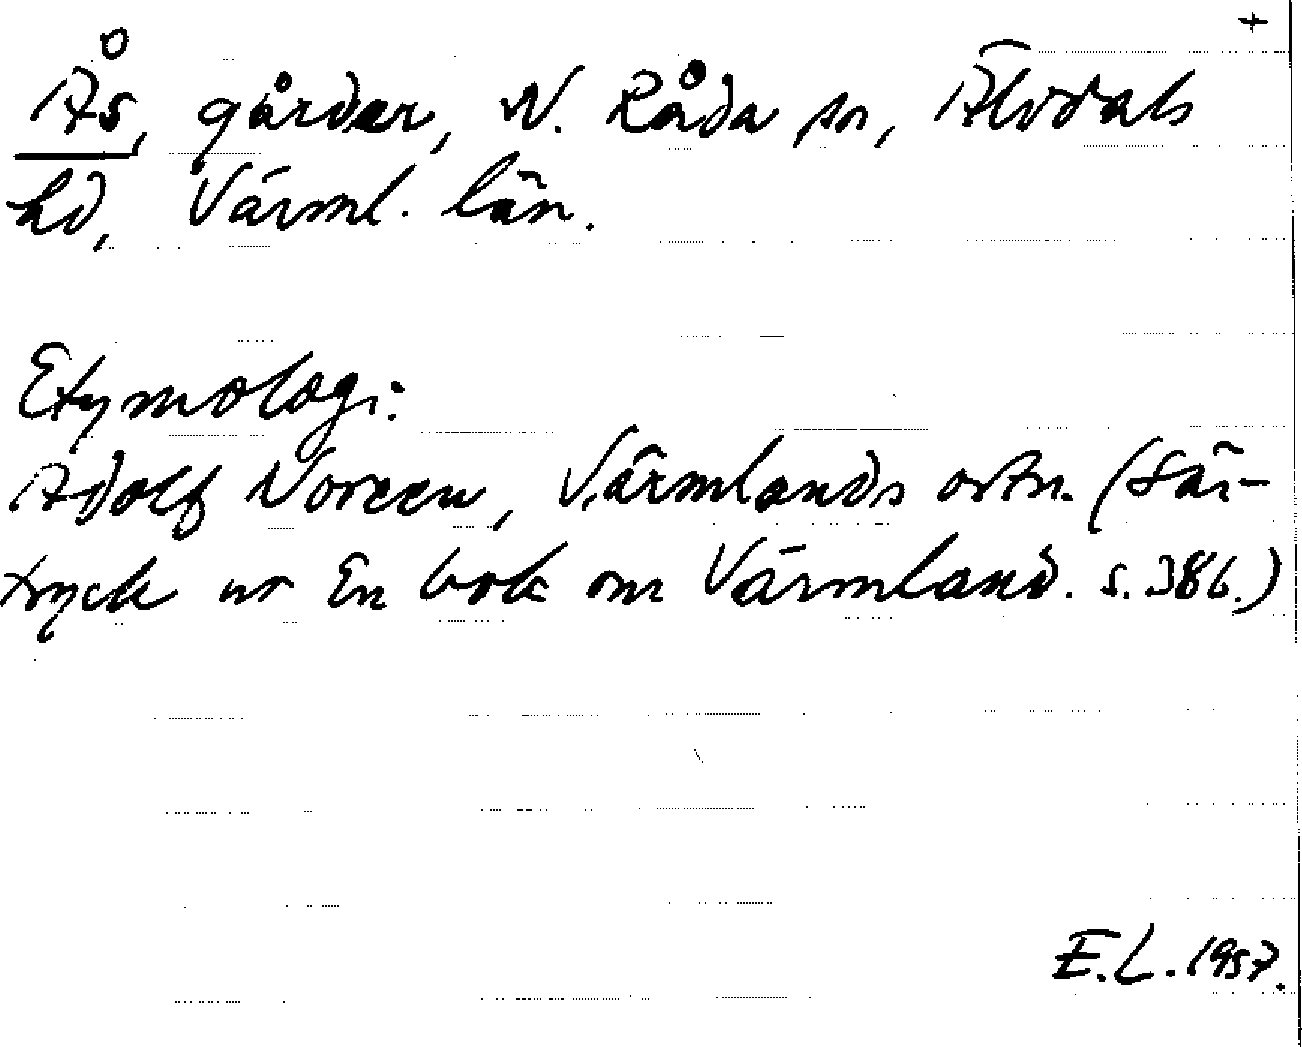 +
Ås, gårdar, N. Råda sn, Älvdals
hd, Värml. län.
Etymologi:
Adolf Noreen, Värmlands ortn. (Sär-
tryck ur En bok om Värmland. s. 386.)
E.L. 1957.